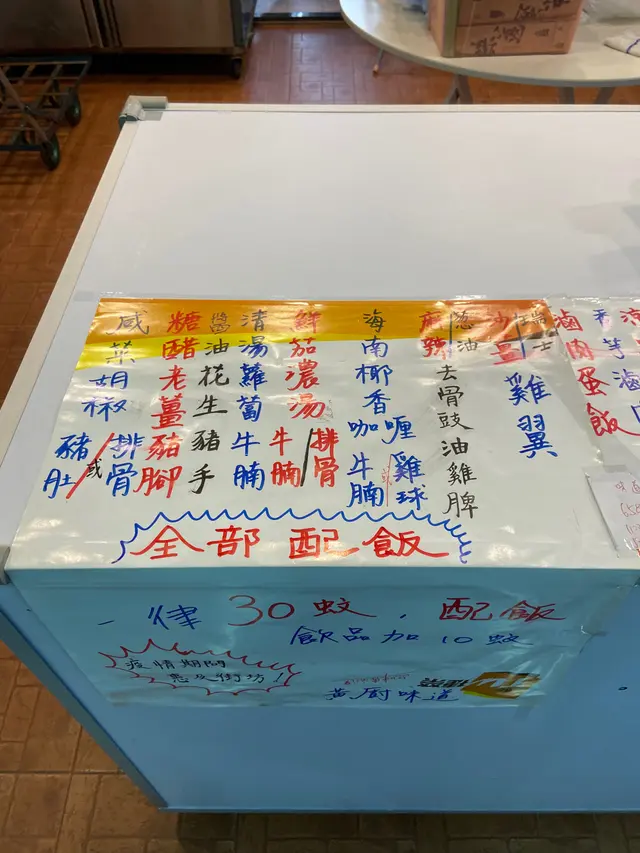 咸菜胡椒豬肚/或排骨
糖醋老薑豬腳
醬油花生豬手
清湯蘿蔔牛腩
鮮茄濃湯牛腩/排骨
海南椰香咖喱牛腩/雞球
麻辣/葱油去骨豉油雞脾
沙薑/瑞士雞翼
滷肉蛋飯
全部配飯
一律30蚊,配飯
飲品加10蚊
疫情期間
惠及街坊!
黃廚味道